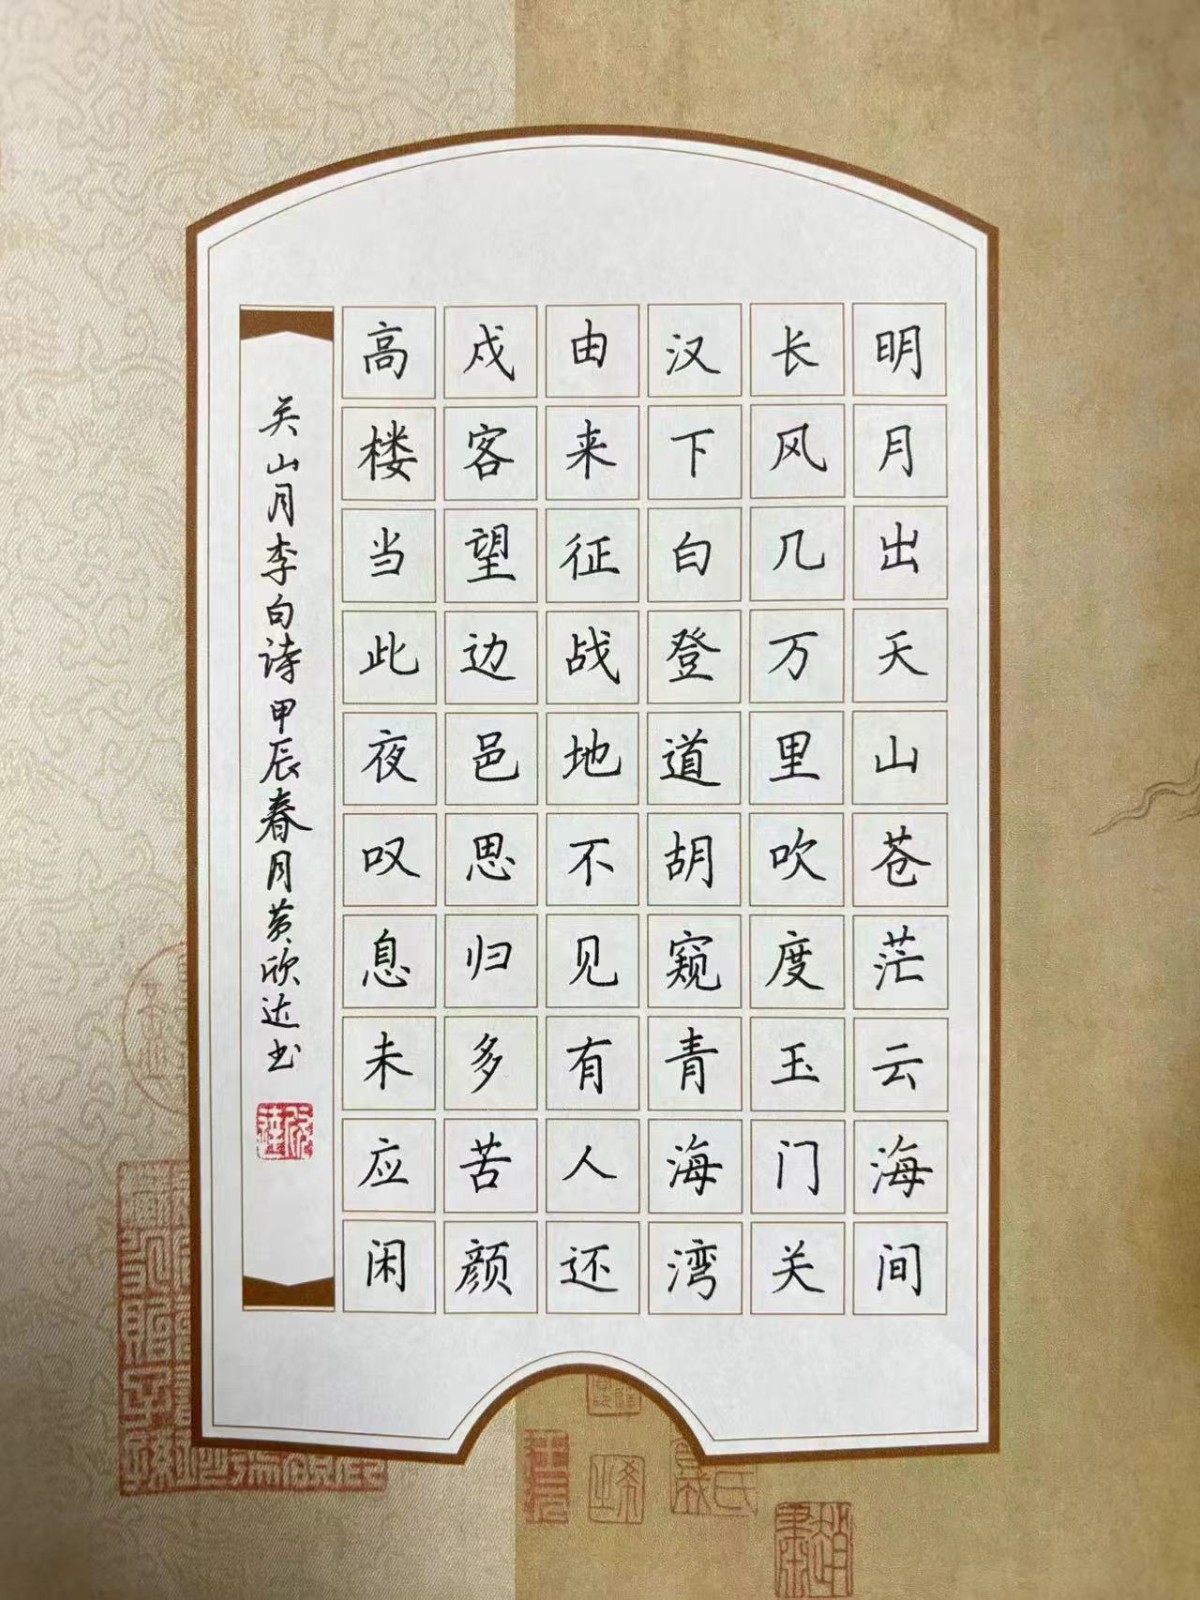 明月出天山苍茫云海间
长风几万里吹度玉门关
汉下白登道胡窥青海湾
由来征战地不见有人还
戍客望边邑思归多苦颜
高楼当此夜叹息未应闲
关山月李白诗甲辰春月黄欣达书